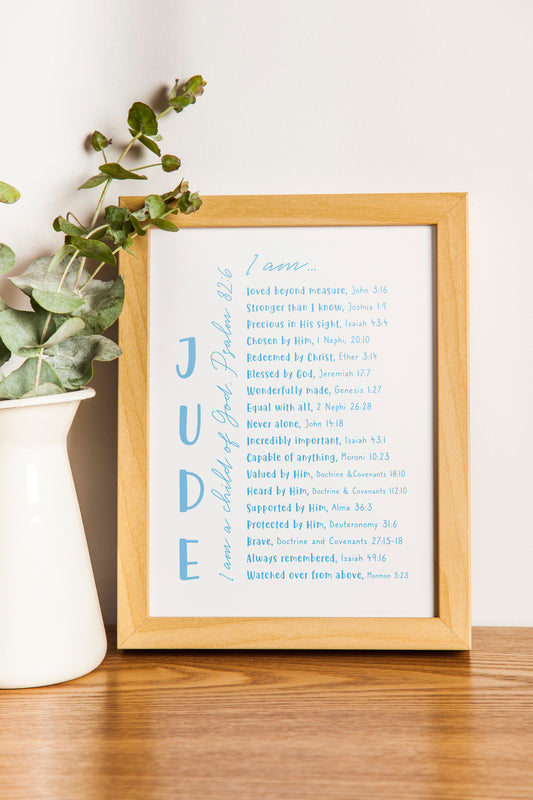 JUDE
I am a child of God. Psalm 82:6
I am...
Loved beyond measure, John 3:16
Stronger than I know, Joshua 1:9
Precious in His sight, Isaiah 43:4
Chosen by Him, 1 Nephi, 20:10
Redeemed by Christ, Ether 3:14
Blessed by God, Jeremiah 17:7
Wonderfully made, Genesis 1:27
Equal with all, 2 Nephi 26:28
Never alone, John 14:18
Incredibly important, Isaiah 43:1
Capable of anything, Moroni 10:23
Valued by Him, Doctrine &Covenants 18:10
Heard by Him, Doctrine & Covenants 112:10
Supported by Him, Alma 36:3
Protected by Him, Deuteronomy 31:6
Brave, Doctrine and Covenants 27:15-18
Always remembered, Isaiah 49:16
Watched over from above, Mormon 5:23